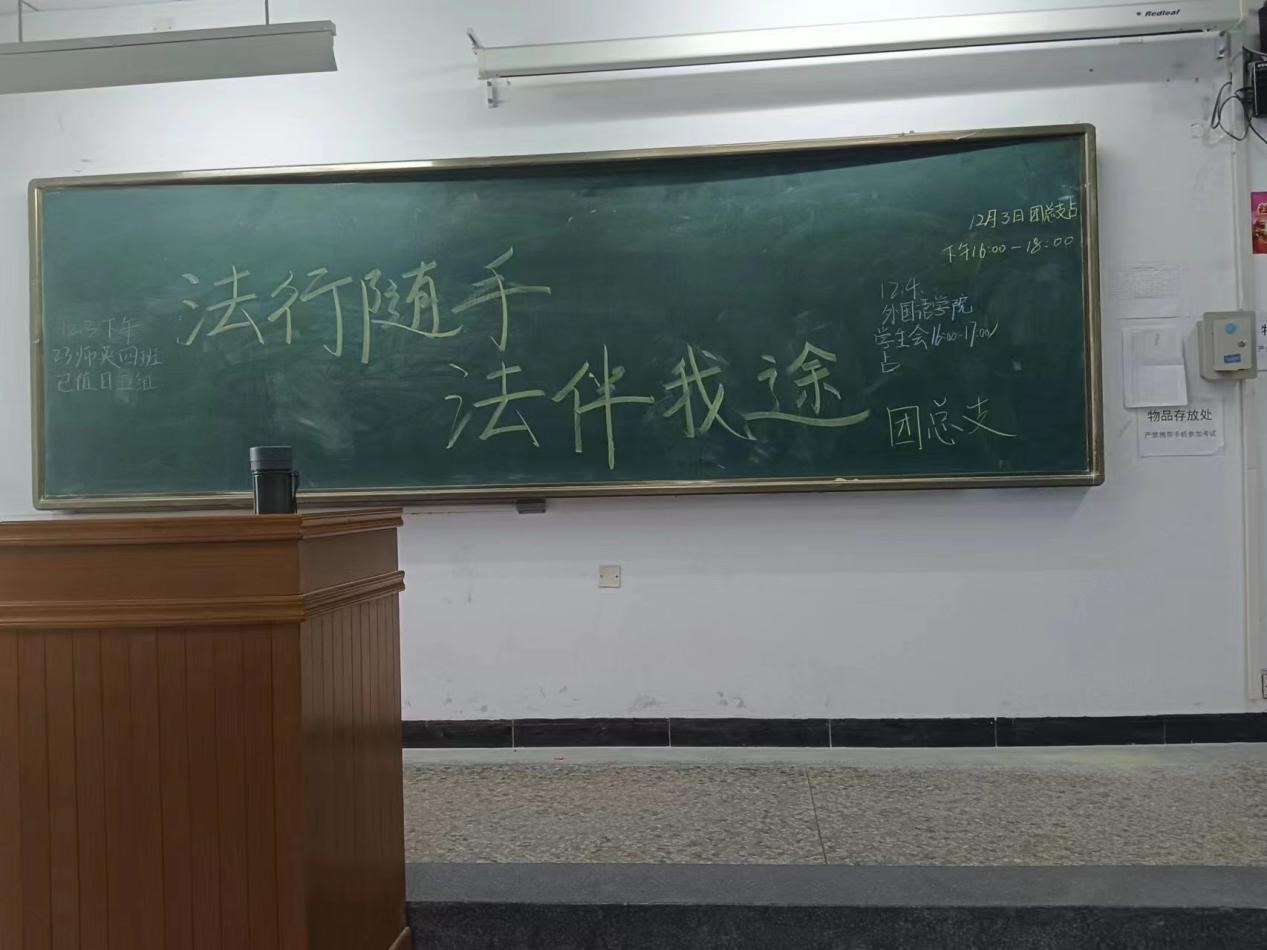 Redleaf
12月3日团总支占
下午16:00-18:00
法行随手
法伴我途
团总支
12.4.
外国语学院
学生会16:00-17:00
占
12.3下午
23师英四班
已值日五组
物品存放处
严禁携带手机参加考试